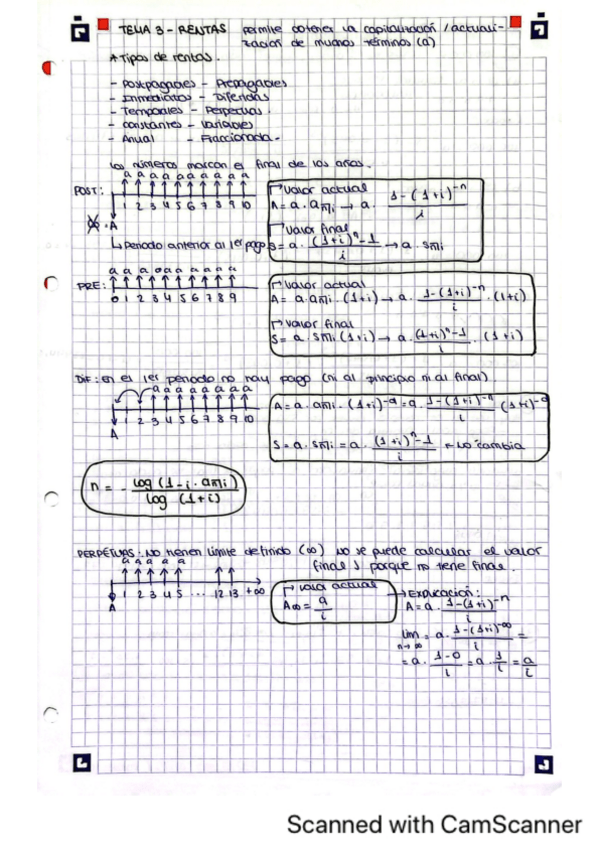 TEMA 3 - RENTAS permite obtener la capitalización / actuali-
zación de muchos términos (a)
* Tipos de rentas.
- Postpagables - Prepagables
- Inmediatas - Diferidas
- Temporales - Perpetuas.
- Constantes - Variables
- Anual - Fraccionada.
Los números marcan el final de los años.
a a a a a a a a a a
POST:
1 2 3 4 5 6 7 8 9 10
A
↳ Periodo anterior al 1er pago
Valor actual
A = a · an¬i → a · 1-(1+i)^-n / i
Valor final
S = a · (1+i)^n-1 / i → a · sn¬i
a a a a a a a a a a
PRE:
0 1 2 3 4 5 6 7 8 9
Valor actual
A = a · an¬i · (1+i) → a · 1-(1+i)^-n / i · (1+i)
Valor final
S = a · sn¬i (1+i) → a · (1+i)^n-1 / i · (1+i)
DIF: en el 1er periodo no hay pago (ni al principio ni al final).
a a a a a a a a
1 2 3 4 5 6 7 8 9 10
A
A = a · an¬i · (1+i)^-d = a · 1-(1+i)^-n / i (1+i)^-d
S = a · sn¬i = a · (1+i)^n-1 / i ← no cambia
n = - log (1-i · an¬i) / log (1+i)
PERPÉTUAS: No tienen límite definido (∞) no se puede calcular el valor
final porque no tiene final.
a a a a a
1 2 3 4 5 ... 12 13 +∞
A
Valor actual
A∞ = a / i
→ Explicación:
A = a · 1-(1+i)^-n / i
lim n→∞ = a · 1-(1+i)^-∞ / i =
= a · 1-0 / i = a · 1 / i = a / i
Scanned with CamScanner